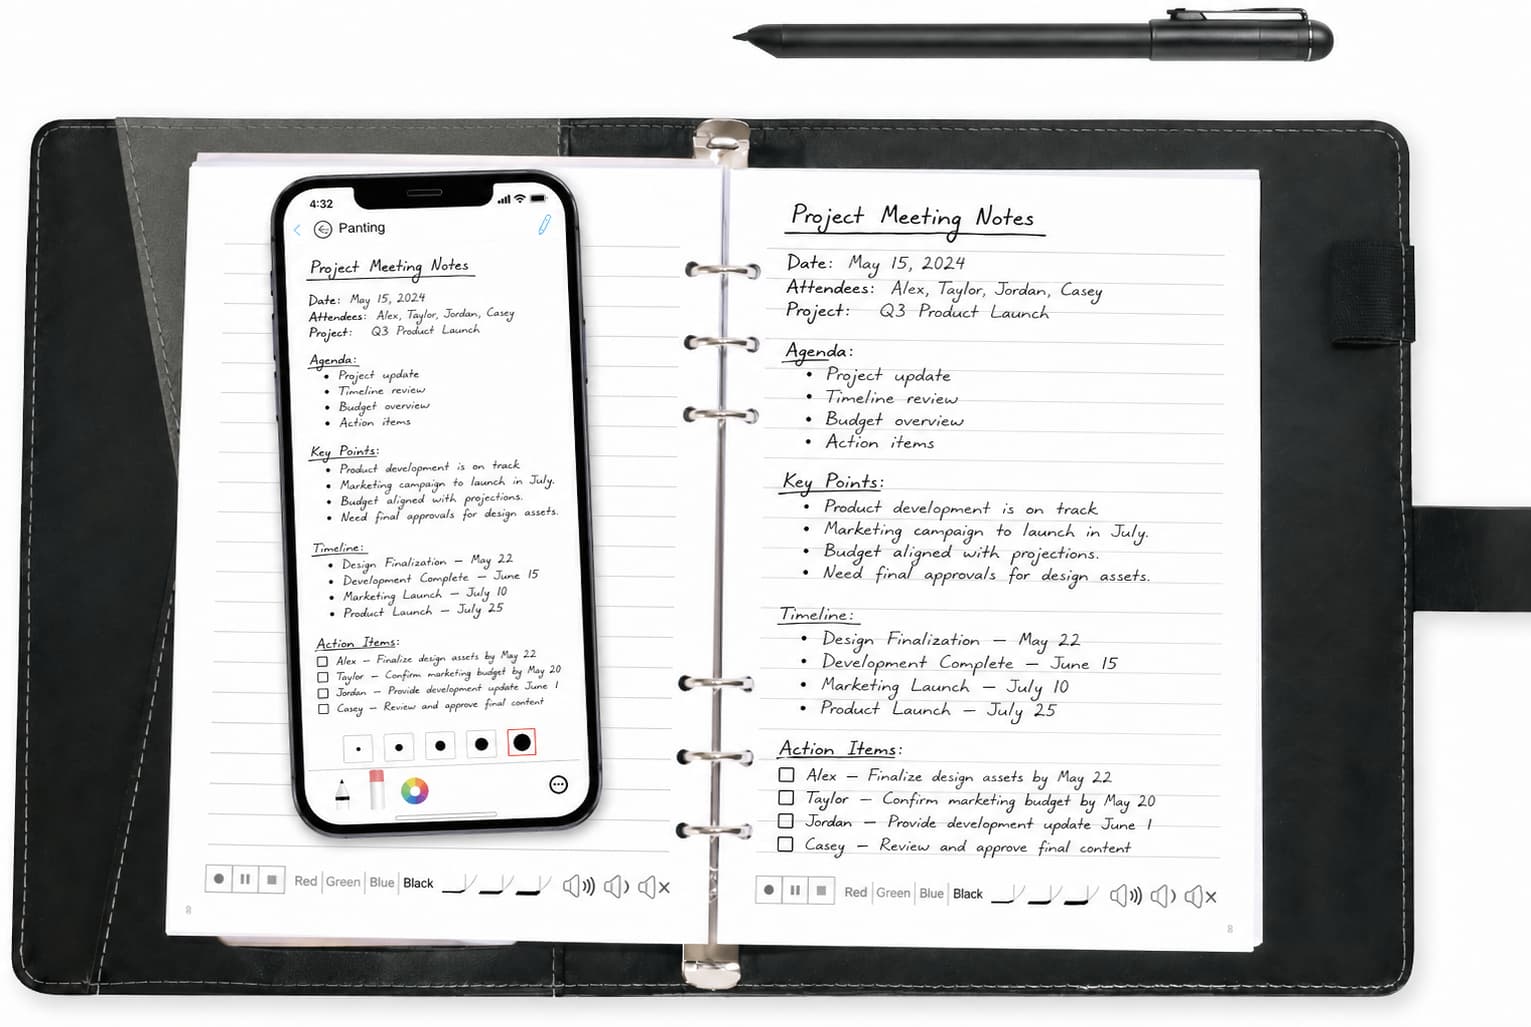 4:32
Panting
Project Meeting Notes
Date: May 15, 2024
Attendees: Alex, Taylor, Jordan, Casey
Project: Q3 Product Launch
Agenda:
• Project update
• Timeline review
• Budget overview
• Action items
Key Points:
• Product development is on track
• Marketing campaign to launch in July.
• Budget aligned with projections.
• Need final approvals for design assets.
Timeline:
• Design Finalization — May 22
• Development Complete — June 15
• Marketing Launch — July 10
• Product Launch — July 25
Action Items:
☐ Alex — Finalize design assets by May 22
☐ Taylor — Confirm marketing budget by May 20
☐ Jordan — Provide development update June 1
☐ Casey — Review and approve final content
Red | Green | Blue | Black
8
Project Meeting Notes
Date: May 15, 2024
Attendees: Alex, Taylor, Jordan, Casey
Project: Q3 Product Launch
Agenda:
• Project update
• Timeline review
• Budget overview
• Action items
Key Points:
• Product development is on track
• Marketing campaign to launch in July.
• Budget aligned with projections.
• Need final approvals for design assets.
Timeline:
• Design Finalization — May 22
• Development Complete — June 15
• Marketing Launch — July 10
• Product Launch — July 25
Action Items:
☐ Alex — Finalize design assets by May 22
☐ Taylor — Confirm marketing budget by May 20
☐ Jordan — Provide development update June 1
☐ Casey — Review and approve final content
Red | Green | Blue | Black
8